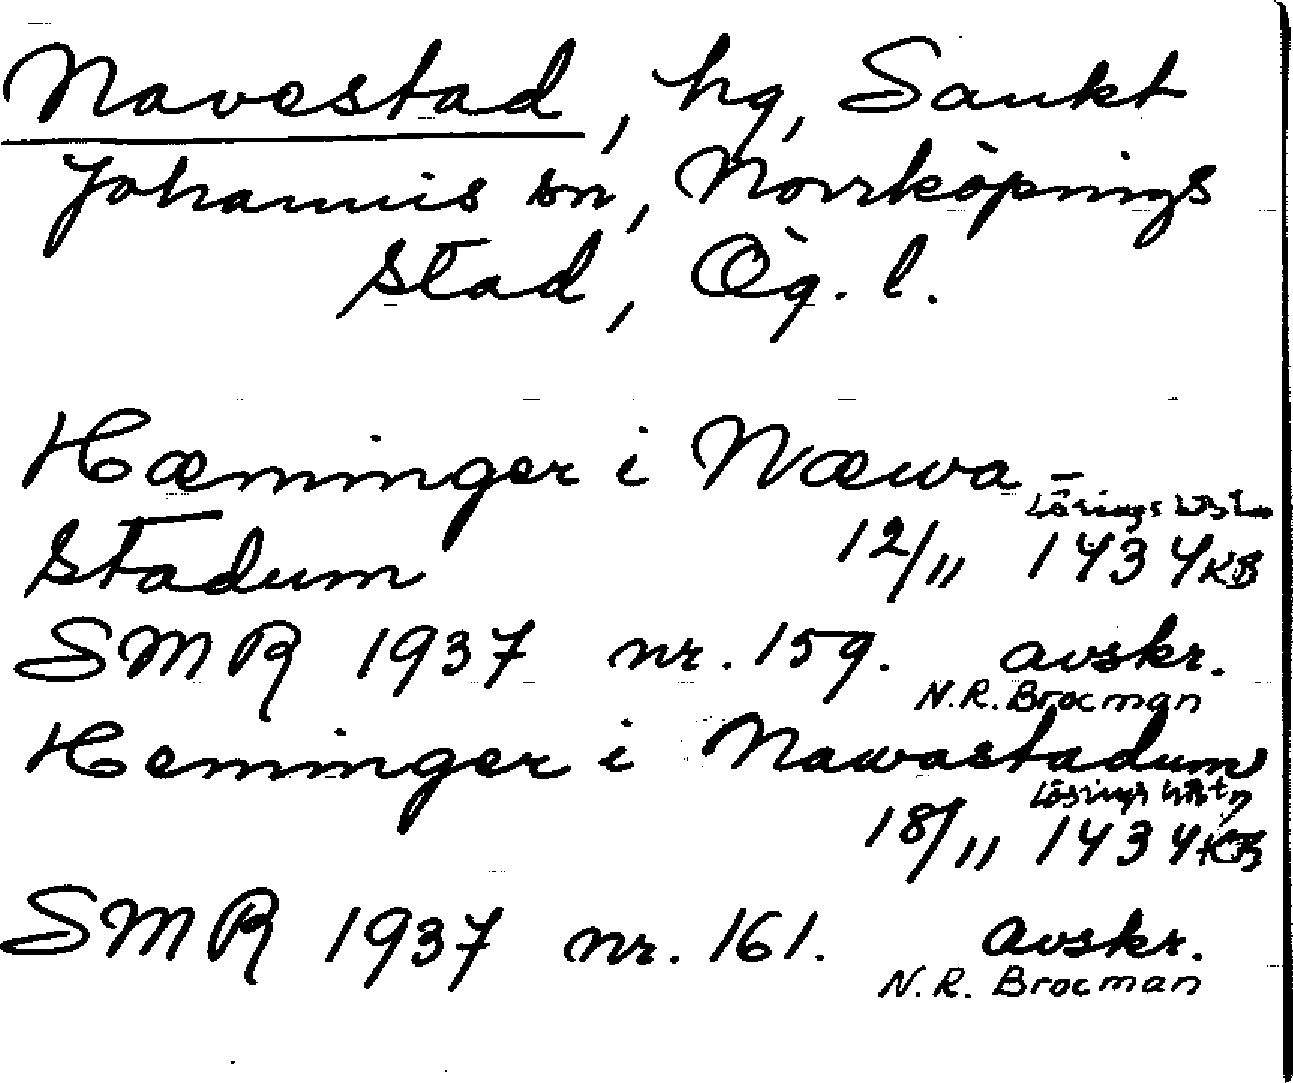 Navestad, hg, Sankt
Johannis sn, Norrköpings
stad, Ög. l.
Hæminger i Næwa-
stadum
Lösings
12/11 1434 KB
SMR 1937 nr. 159. avskr.
N.R. Brocman
Heminger i Nawastadum
Lösings
18/11 1434 KB
SMR 1937 nr. 161. avskr.
N.R. Brocman